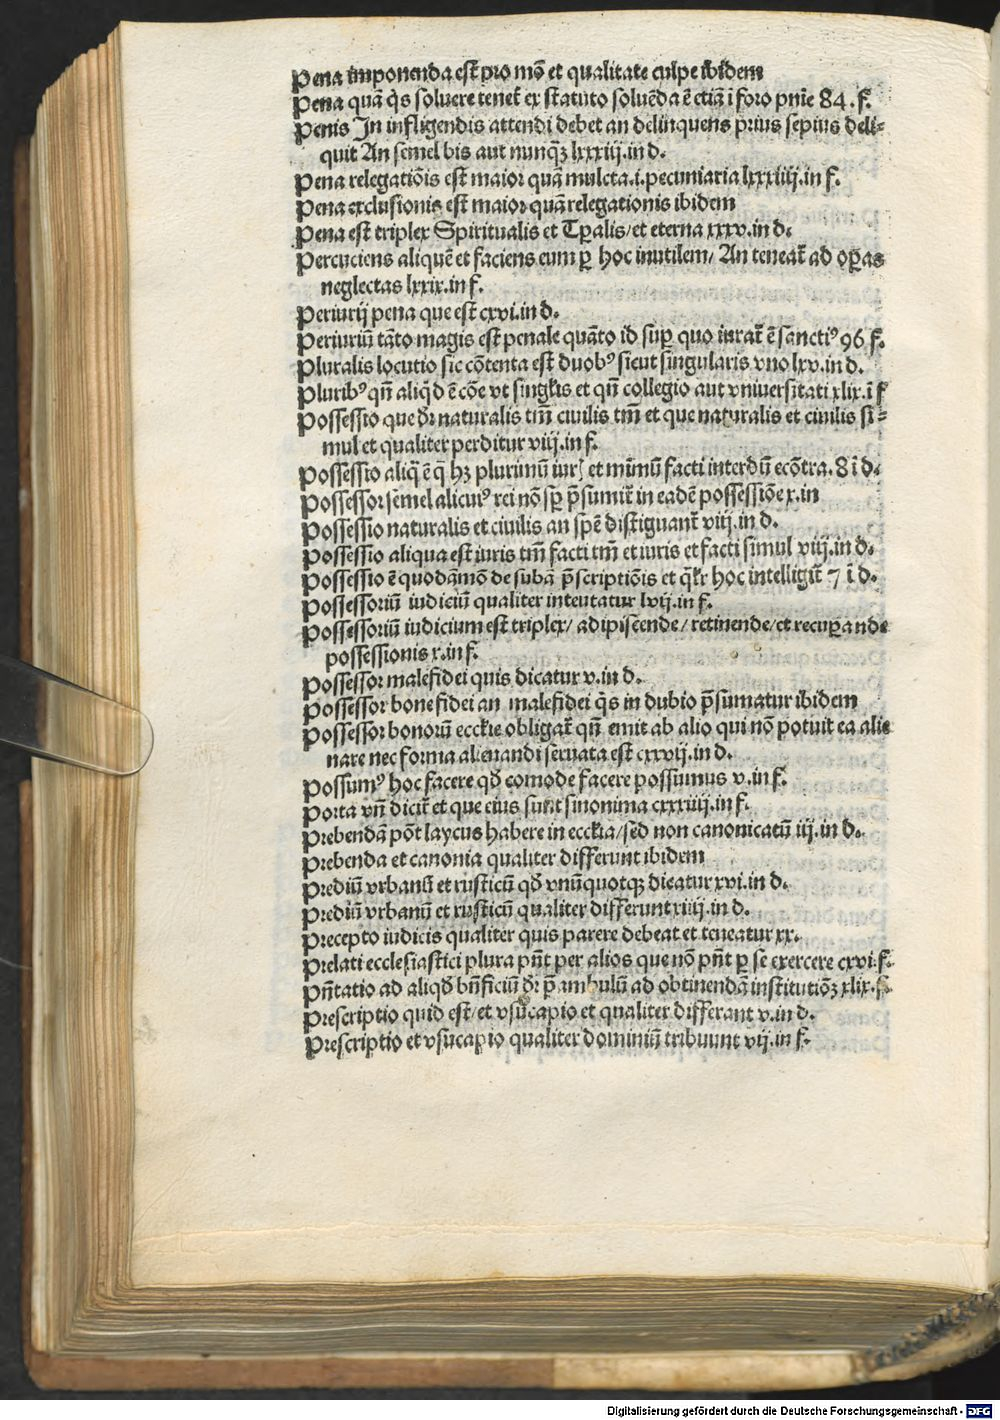 Pena imponenda est pro mō et qualitate culpe ibidem
Pena quā q̄s soluere tenet̄ ex statuto soluēda ē etiā ī foro pn̄ie 84. f.
Penis In infligendis attendi debet an delinquens prius sepius deli⸗
quit An semel bis aut nunq̄ꝫ lxxxiij.in d.
Pena relegatiōis est maior quā mulcta.i.pecuniaria lxxxiiij.in f.
Pena exclusionis est maior quā relegationis ibidem
Pena est triplex Spiritualis et Tꝑalis/et eterna xxxv.in d.
Percuciens aliquē et faciens eum ꝑ hoc inutilem/ An teneat̄ ad oꝑas
neglectas lxxix.in f.
Periurij pena que est cxvi.in d.
Periuriū tāto magis est penale quāto id suꝑ quo iurat̄ ē sanctiꝰ 96 f.
Pluralis locutio sic cōtenta est duobꝰ sicut singularis vno lxv.in d.
Pluribꝰ qn̄ aliq̄d ē cōe vt singl̄is et qn̄ collegio aut vniuersitati xlix.ī f
Possessio que dr̄ naturalis tm̄ ciuilis tm̄ et que naturalis et ciuilis si⸗
mul et qualiter perditur viij.in f.
Possessio aliq̄ ē q̄ hꝫ plurimū iur̄ et minimū facti interdū ecōtra. 8 ī d.
Possessor semel alicuiꝰ rei nō sp̄ p̄sumit̄ in eadē possessiōe x.in
Possessio naturalis et ciuilis an spē distiguant̄ viij.in d.
Possessio aliqua est iuris tm̄ facti tm̄ et iuris et facti simul viij.in d.
Possessio ē quodāmō de subā p̄scriptiōis et ql̄r hoc intelligit̄ 7 ī d.
Possessoriū iudiciū qualiter intentatur lvij.in f.
Possessoriū iudicium est triplex/ adipiscende/ retinende/et recuꝑande
possessionis x.in f.
Possessor malefidei quis dicatur v.in d.
Possessor bonefidei an malefidei q̄s in dubio p̄sumatur ibidem
Possessor bonorū eccl̄ie obligat̄ qn̄ emit ab alio qui nō potuit ea alie
nare nec forma alienandi seruata est cxxvij.in d.
Possumꝰ hoc facere qd̄ comode facere possumus v.in f.
Porta vn̄ dicit̄ et que eius sunt sinonima cxxxiiij.in f.
Prebendā pōt laycus habere in eccl̄ia/sed non canonicatū iij.in d.
Prebenda et canonia qualiter differunt ibidem
Prediū vrbanū et rusticū qd̄ vnūquotqꝫ dicatur xvi.in d.
Prediū vrbanū et rusticū qualiter differunt xiiij.in d.
Precepto iudicis qualiter quis parere debeat et teneatur xx.
Prelati ecclesiastici plura pn̄t per alios que nō pn̄t ꝑ se exercere cxvi.f.
Pn̄tatio ad aliqd̄ bn̄ficiū dr̄ p̄ambulū ad obtinendā institutiōꝫ xlix.f.
Prescriptio quid est/et vsucapio et qualiter differant v.in d.
Prescriptio et vsucapio qualiter dominiū tribuunt vij.in f.
Digitalisierung gefördert durch die Deutsche Forschungsgemeinschaft - DFG